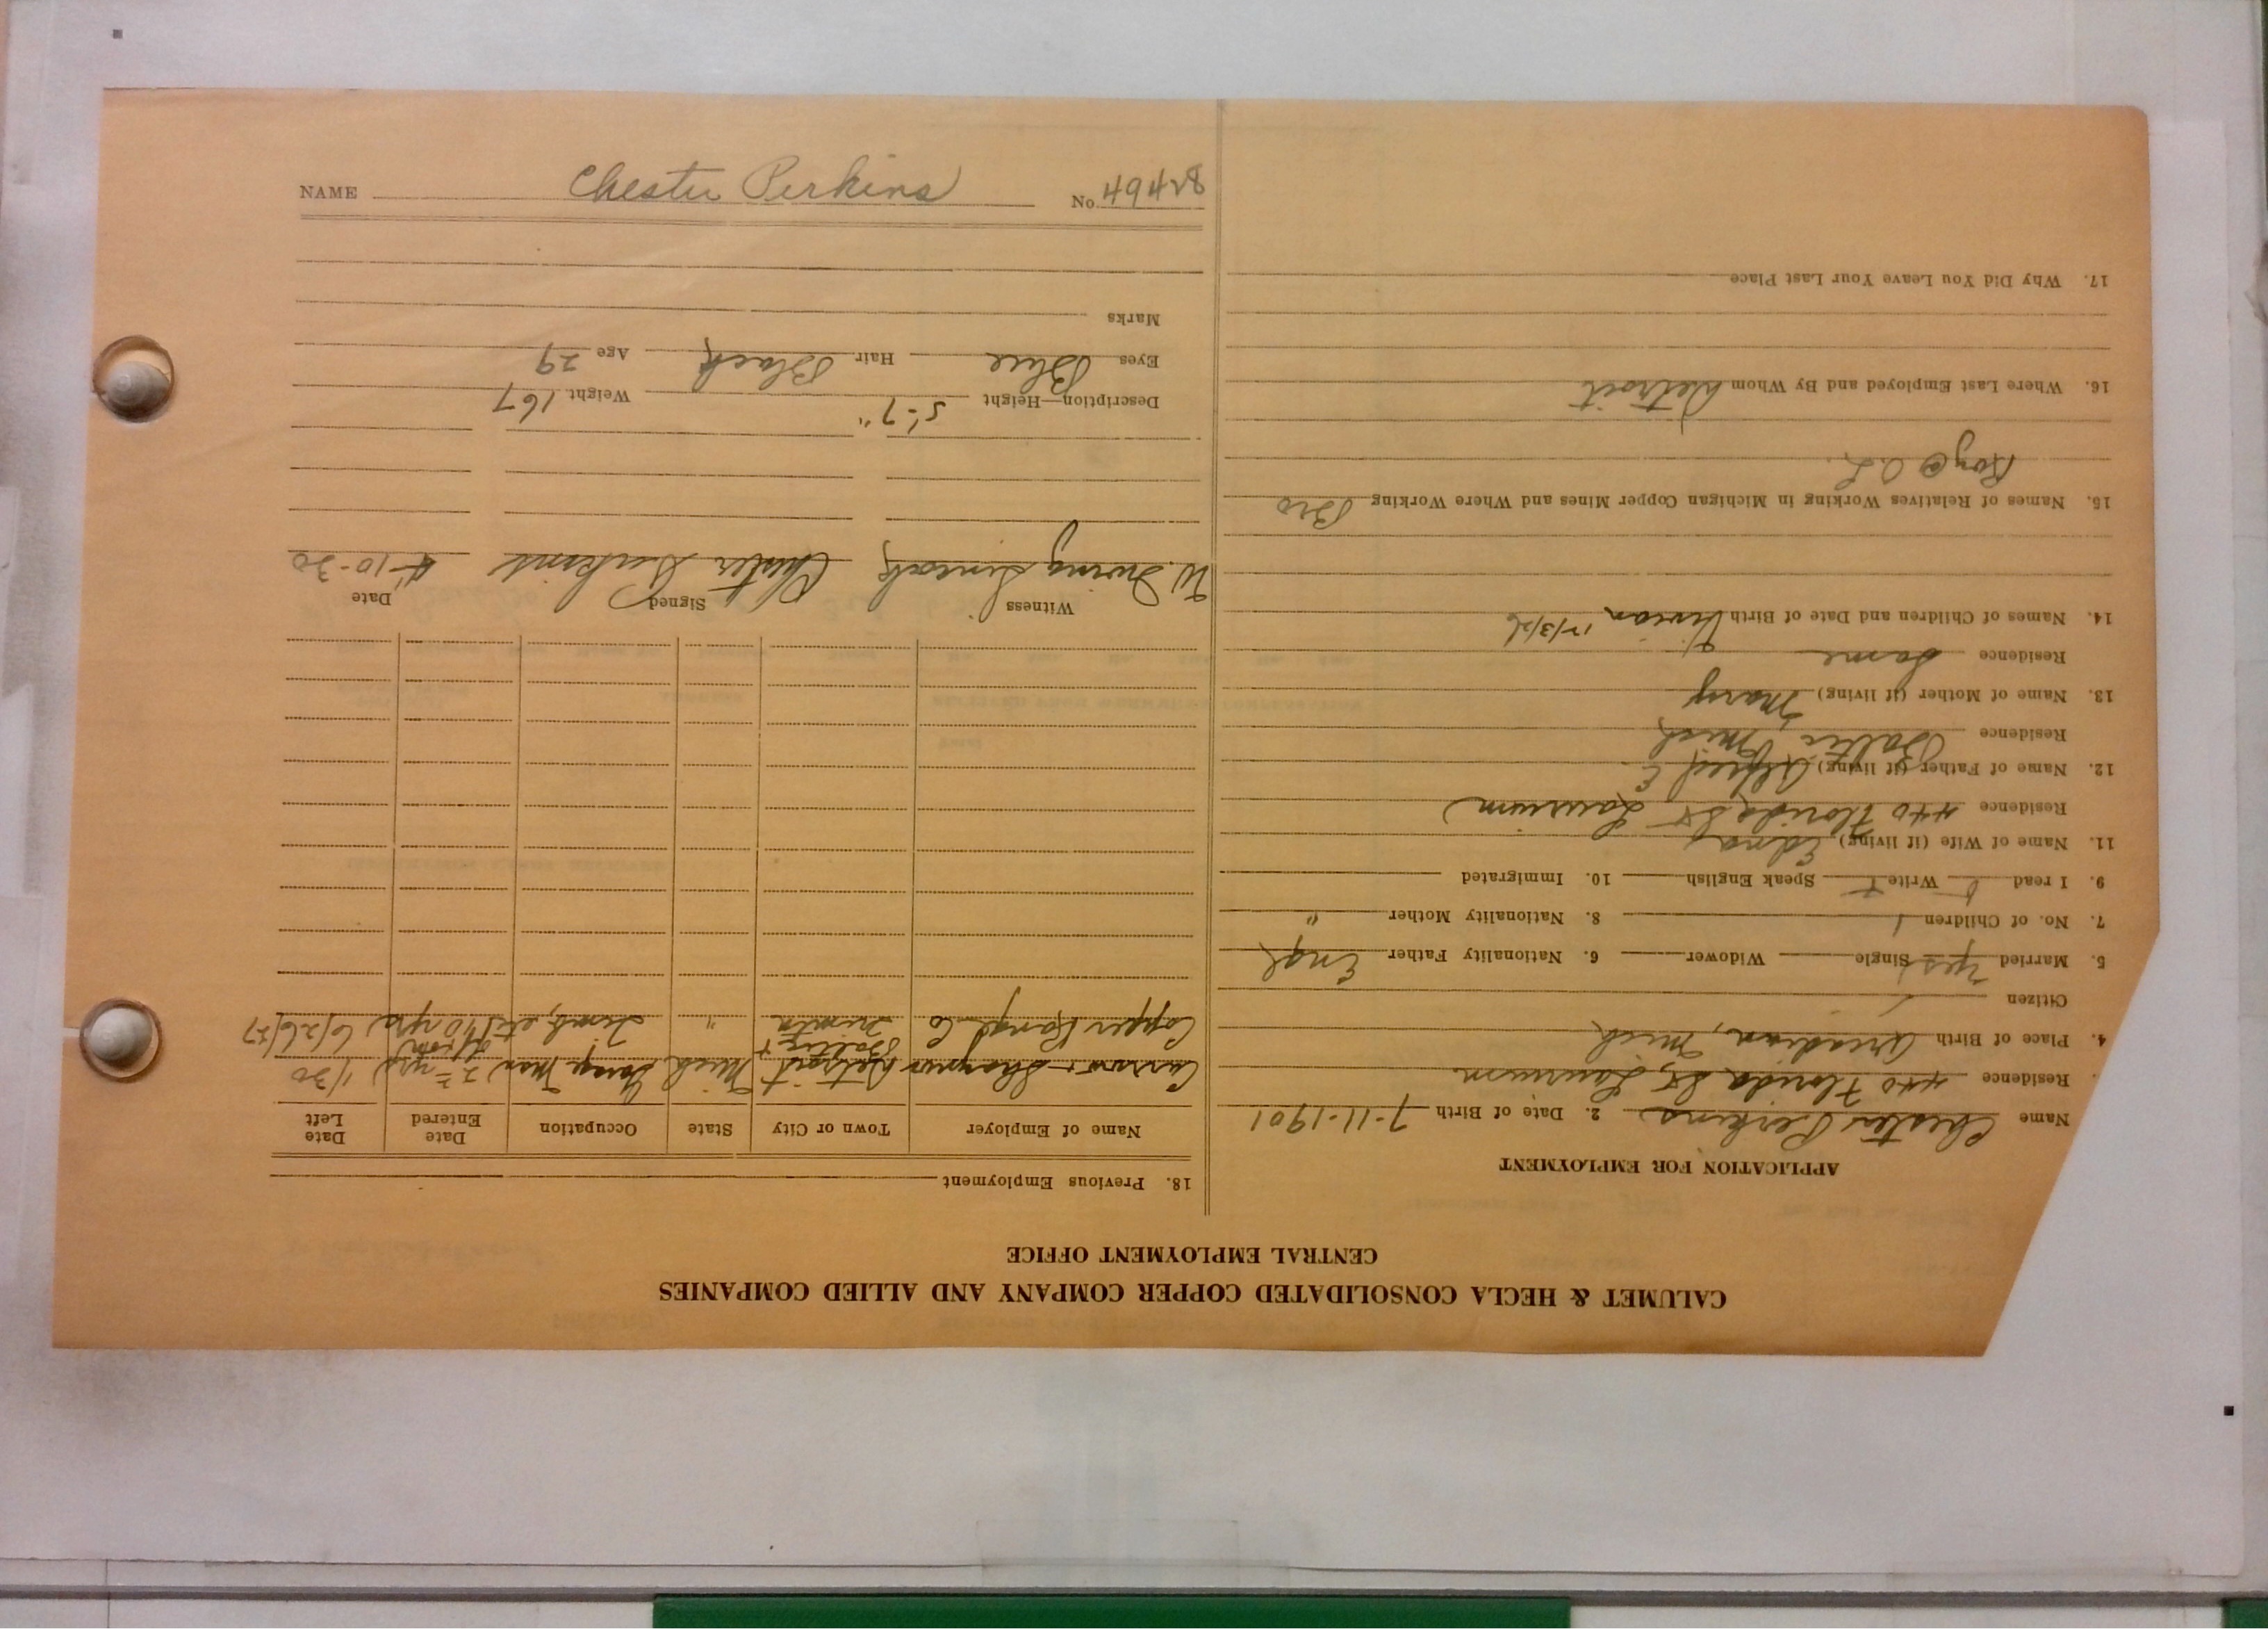 CALUMET & HECLA CONSOLIDATED COPPER COMPANY AND ALLIED COMPANIES
CENTRAL EMPLOYMENT OFFICE
APPLICATION FOR EMPLOYMENT
Name Chester Perkins 2. Date of Birth 7-11-1901
Residence 440 Florida St, Laurium
4. Place of Birth Arcadian, Mich
Citizen /
5. Married Yes Single Widower 6. Nationality Father Engl
7. No. of Children 1 8. Nationality Mother "
9. I read Write Speak English 10. Immigrated
11. Name of Wife (if living) Edna
Residence 440 Florida St Laurium
12. Name of Father (if living) Alfred E.
Residence Baltic, Mich
13. Name of Mother (if living) Mary
Residence Same
14. Names of Children and Date of Birth Vivian 12/3/26
15. Names of Relatives Working in Michigan Copper Mines and Where Working Bro
Roy @ O.L.
16. Where Last Employed and By Whom Detroit
17. Why Did You Leave Your Last Place
18. Previous Employment
Name of Employer Town or City State Occupation Date Entered Date Left
Detroit Mich Garage Man 2½ yrs 1/30
Copper Range Co Baltic + Trimtn " Timb, etc 10 yrs off & on 6/26/27
Witness Signed Date
W. Irving Chester Perkins 4-10-30
Description—Height 5'-7" Weight 167
Eyes Blue Hair Black Age 29
Marks
NAME Chester Perkins No. 49428